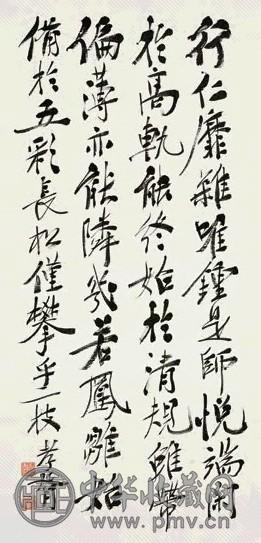 行仁靡雜唯鍾是師悦端閑
於高軌能終始於清規雖帶
偏薄亦能隣幾若鳳雛始
備於五彩長松僅攀乎一枝 孝胥
中华收藏网
www.pmv.cn